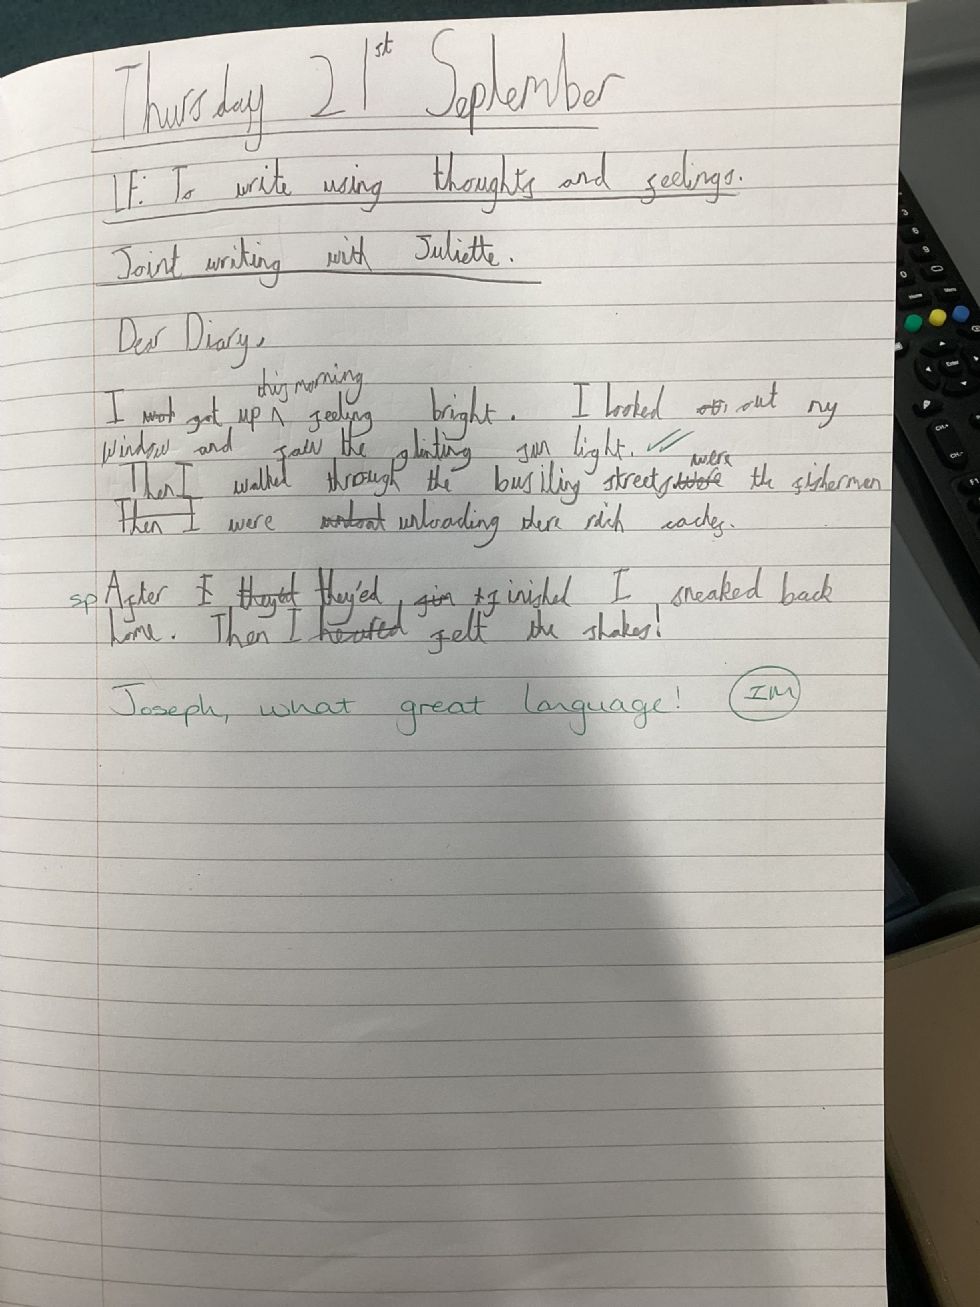 Thursday 21st September
LF: To write using thoughts and feelings.
Joint writing with Juliette.
Dear Diary,
this morning
I got up ^ feeling bright. I looked out my
window and saw the glinting sun light.
were
Then I walked through the busiling streets where the fishermen
Then I were unloading there rich caches.
sp After I they'ed finished I sneaked back
home. Then I felt the shakes!
Joseph, what great language! IM